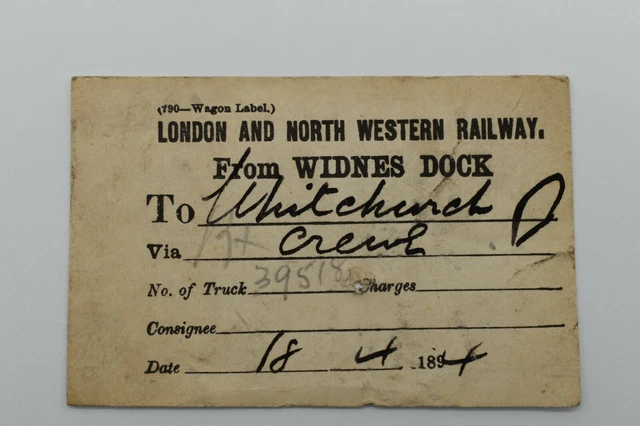 (790—Wagon Label.)
LONDON AND NORTH WESTERN RAILWAY.
From WIDNES DOCK
To Whitchurch
Via Crewe
No. of Truck 39518 Charges
Consignee
Date 18 4 1894